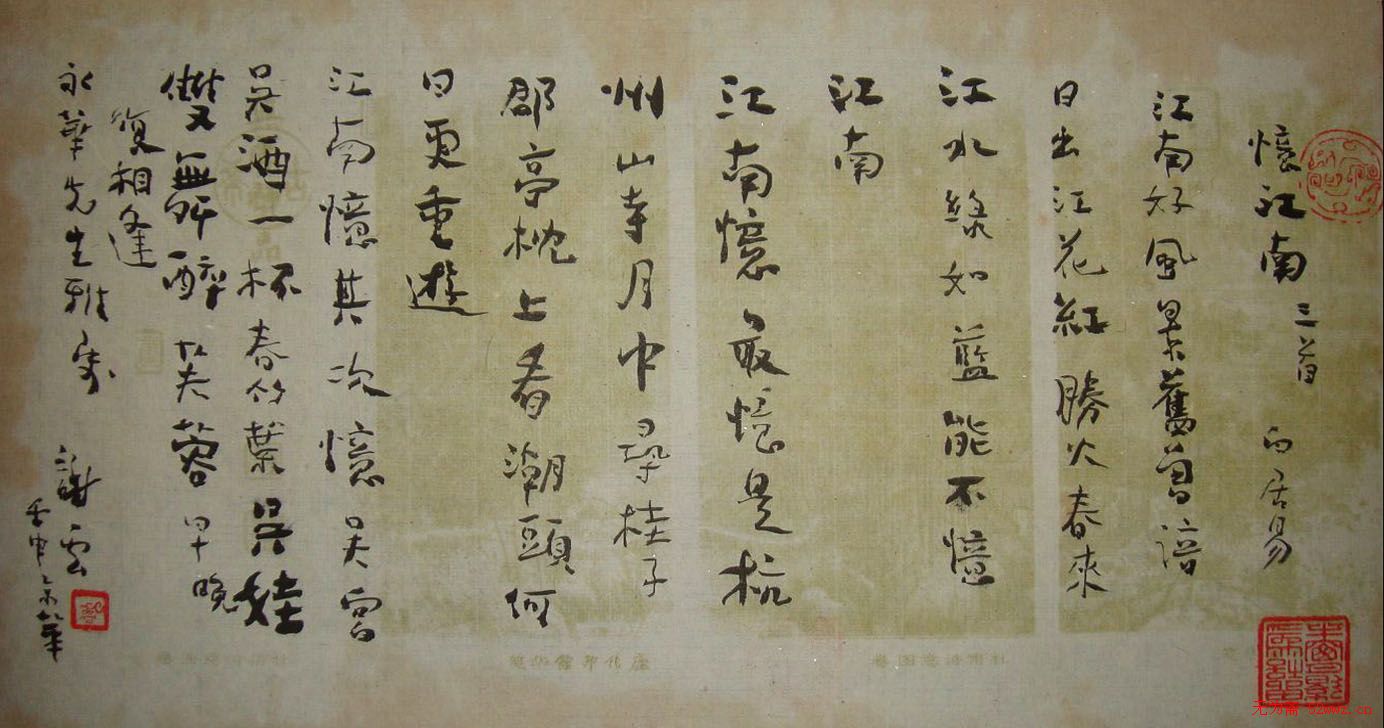 憶江南 三首 白居易
江南好風景舊曾諳
日出江花紅勝火春來
江水綠如藍能不憶
江南
江南憶最憶是杭
州山寺月中尋桂子
郡亭枕上看潮頭何
日更重遊
江南憶其次憶吳宮
吳酒一杯春竹葉吳娃
雙舞醉芙蓉早晚
復相逢
永華先生雅屬
謝雲
壬申京華
无为斋 52wwz.cn